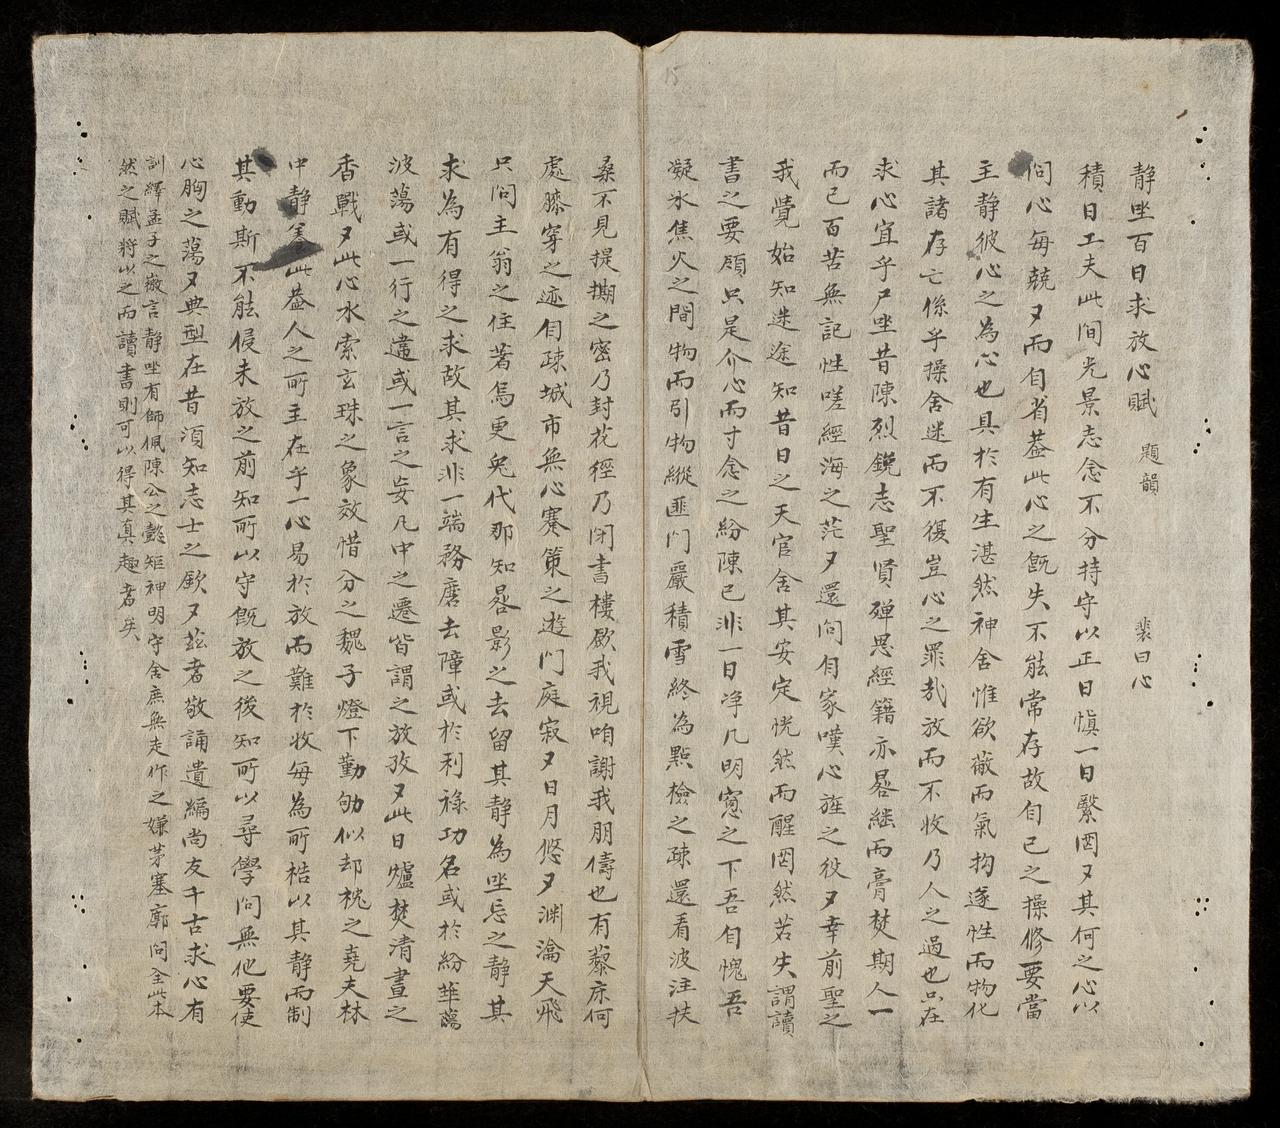 静坐百日求放心賦 題韻 裴曰心
積日工夫此間光景志念不分持守以正日愼一日繫固又其何之心以
問心每兢又而自省蓋此心之旣失不能常存故自己之操修要當
主静彼心之為心也具於有生湛然神舍惟欲蔽而氣拘遂性而物化
其諸存亡係乎操舍迷而不復豈心之罪哉放而不收乃人之過也只在
求心宜乎尸坐昔陳烈鋭志聖賢殫思經籍亦晷繼而膏焚期人一
而已百苦無記性嗟經海之茫又還問自家嘆心旌之役又幸前聖之
我覺始知迷途知昔日之天官舍其安定恍然而醒罔然若失謂讀
書之要顧只是介心而寸念之紛陳已非一日净几明窓之下吾自愧吾
凝氷焦火之間物而引物縱匪門嚴積雪終為點檢之疎還看波注扶
桑不見提撕之密乃封花徑乃閉書樓厭我視咱謝我朋儔也有藜床何
處膝穿之迹自疎城市無心蹇策之遊門庭寂又日月悠又淵淪天飛
只問主翁之住著烏更兔代那知晷影之去留其静為坐忘之静其
求為有得之求故其求非一端務磨去障或於利祿功名或於紛華蕩
波蕩或一行之違或一言之妄凡中之遷皆謂之放孜又此日爐焚清晝之
香戰又此心水索玄珠之象效惜分之魏子燈下勤劬似却襪之堯夫林
中静 此蓋人之所主在乎一心易於放而難於收每為所梏以其静而制
其動斯不能侵未放之前知所以守旣放之後知所以尋學問無他要使
心胸之蕩又典型在昔須知志士之欽又玆者敬誦遺編尚友千古求心有
訓繹孟子之㣲言静坐有師佩陳公之懿矩神明守舍庶無走作之嫌茅塞廓 全此本
然之賦將以之而讀書則可以得其真趣者矣